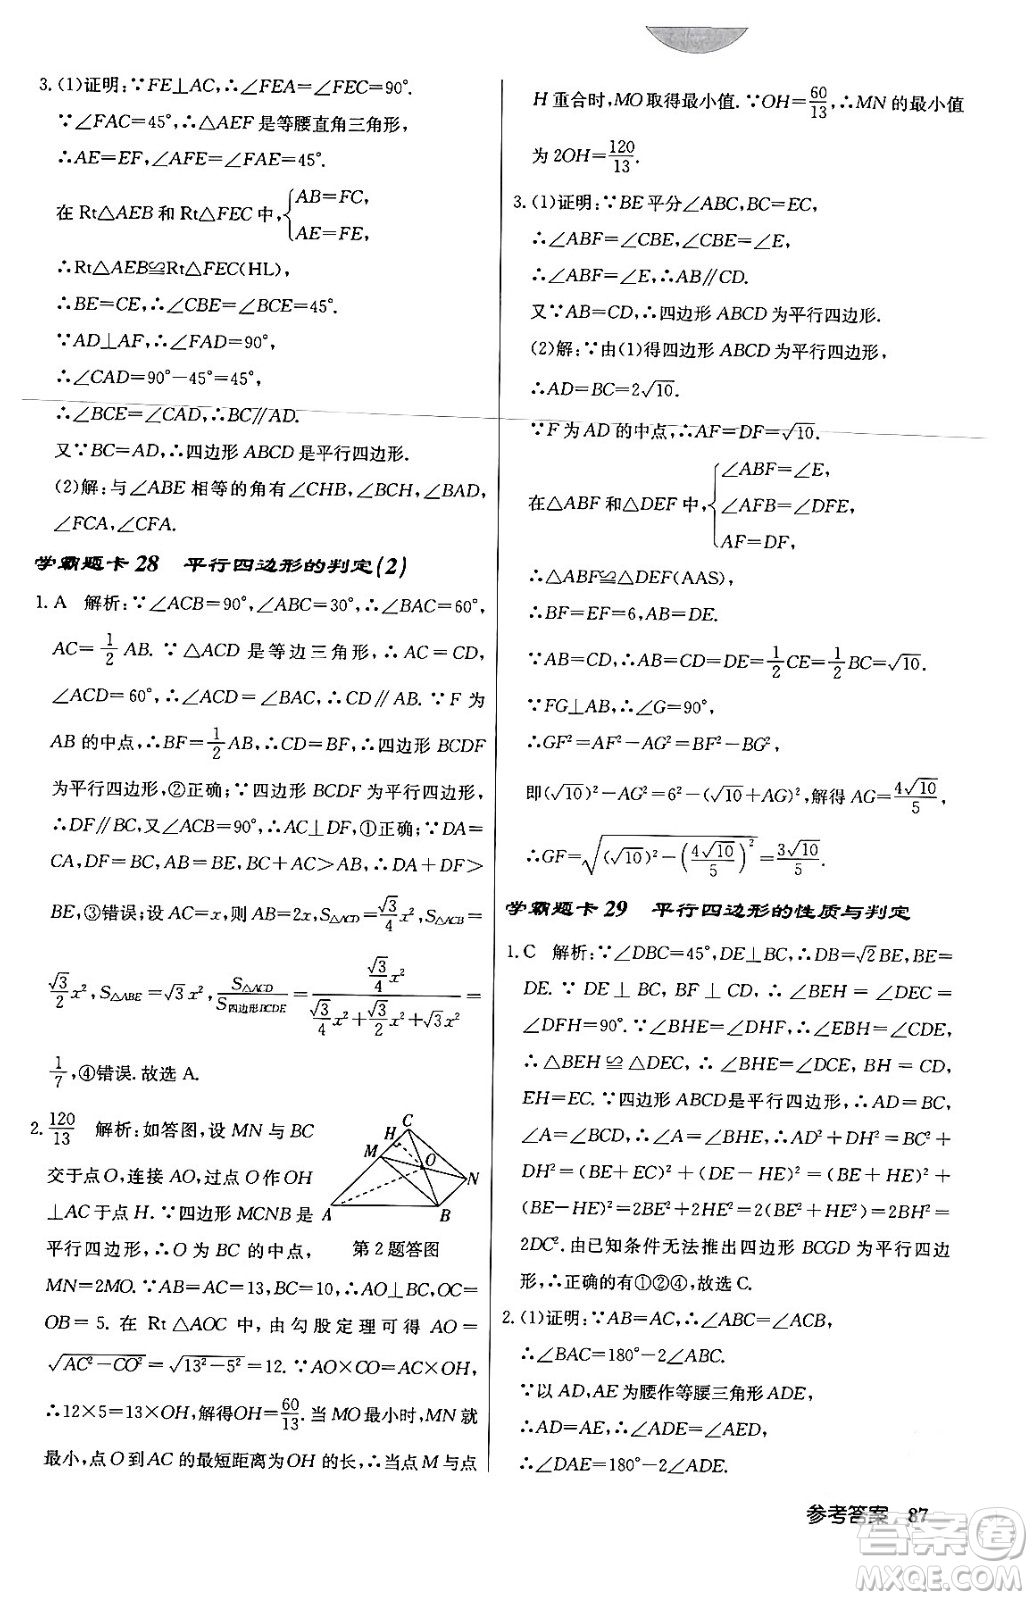 3.(1)证明:∵FE⊥AC,∴∠FEA=∠FEC=90°.
∵∠FAC=45°,∴△AEF 是等腰直角三角形,
∴AE=EF,∠AFE=∠FAE=45°.
在 Rt△AEB 和 Rt△FEC 中,{AB=FC, AE=FE,
∴Rt△AEB≌Rt△FEC(HL),
∴BE=CE,∴∠CBE=∠BCE=45°.
∵AD⊥AF,∴∠FAD=90°,
∴∠CAD=90°-45°=45°,
∴∠BCE=∠CAD,∴BC∥AD.
又∵BC=AD,∴四边形 ABCD 是平行四边形.
(2)解:与∠ABE 相等的角有∠CHB,∠BCH,∠BAD,
∠FCA,∠CFA.
学霸题卡 28 平行四边形的判定(2)
1.A 解析:∵∠ACB=90°,∠ABC=30°,∴∠BAC=60°,
AC=1/2 AB.∵△ACD 是等边三角形,∴AC=CD,
∠ACD=60°,∴∠ACD=∠BAC,∴CD∥AB.∵F 为
AB 的中点,∴BF=1/2 AB,∴CD=BF,∴四边形 BCDF
为平行四边形,②正确;∵四边形 BCDF 为平行四边形,
∴DF∥BC,又∠ACB=90°,∴AC⊥DF,①正确;∵DA=
CA,DF=BC,AB=BE,BC+AC>AB,∴DA+DF>
BE,③错误;设 AC=x,则 AB=2x,S△ACD=√3/4 x²,S△ACB=
√3/2 x²,S△ABE=√3x²,S△ACD/S四边形BCDE=(√3/4 x²)/(√3/4 x²+√3/2 x²+√3x²)=
1/7,④错误.故选 A.
2. 120/13 解析:如答图,设 MN 与 BC
交于点 O,连接 AO,过点 O 作 OH
⊥AC 于点 H.∵四边形 MCNB 是
平行四边形,∴O 为 BC 的中点,
MN=2MO.∵AB=AC=13,BC=10,∴AO⊥BC,OC=
OB=5.在 Rt△AOC 中,由勾股定理可得 AO=
√(AC²-CO²)=√(13²-5²)=12.∵AO×CO=AC×OH,
∴12×5=13×OH,解得OH=60/13.当 MO最小时,MN就
最小,点 O 到 AC 的最短距离为OH 的长,∴当点 M 与点
C
H
M
O
N
A
B
第 2 题答图
H 重合时,MO取得最小值.∵OH=60/13,∴MN 的最小值
为 2OH=120/13.
3.(1)证明:∵BE平分∠ABC,BC=EC,
∴∠ABF=∠CBE,∠CBE=∠E,
∴∠ABF=∠E,∴AB∥CD.
又∵AB=CD,∴四边形 ABCD 为平行四边形.
(2)解:∵由(1)得四边形 ABCD 为平行四边形,
∴AD=BC=2√10.
∵F 为 AD 的中点,∴AF=DF=√10.
在△ABF 和△DEF 中,{∠ABF=∠E, ∠AFB=∠DFE, AF=DF,
∴△ABF≌△DEF(AAS),
∴BF=EF=6,AB=DE.
∵AB=CD,∴AB=CD=DE=1/2 CE=1/2 BC=√10.
∵FG⊥AB,∴∠G=90°,
∴GF²=AF²-AG²=BF²-BG²,
即(√10)²-AG²=6²-(√10+AG)²,解得 AG=4√10/5,
∴GF=√((√10)²-(4√10/5)²)=3√10/5.
学霸题卡 29 平行四边形的性质与判定
1.C 解析:∵∠DBC=45°,DE⊥BC,∴DB=√2BE,BE=
DE.∵DE⊥BC,BF⊥CD,∴∠BEH=∠DEC=
∠DFH=90°.∵∠BHE=∠DHF,∴∠EBH=∠CDE,
∴△BEH≌△DEC,∴∠BHE=∠DCE,BH=CD,
EH=EC.∵四边形 ABCD是平行四边形,∴AB=CD,
∠A=∠DCB,∴AB=BH,∠A=∠BHE.∴AD²+
DH²=(BE+EC)²+(DE-HE)²=(BE+HE)²+
(BE-HE)²=2BE²+2HE²=2(BE²+HE²)=2BH²=
2DC².由已知条件无法推出四边形 BCGD 为平行四边
形,∴正确的有①②④,故选 C.
2.(1)证明:∵AB=AC,∴∠ABC=∠ACB,
∴∠BAC=180°-2∠ABC.
∵以 AD,AE为腰作等腰三角形 ADE,
∴AD=AE,∴∠ADE=∠AED,
∴∠DAE=180°-2∠ADE.
参考答案 87
答案卷
MXQE.COM